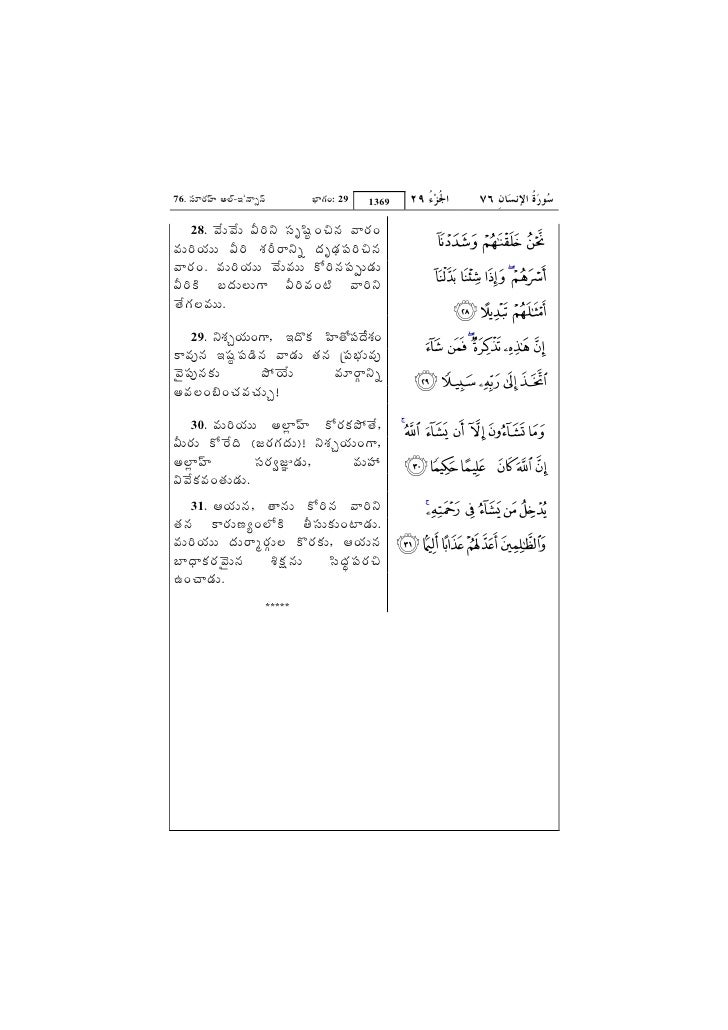 76. సూరహ్ అల్-ఇ'న్సాన్ భాగం: 29 1369 الجُزْءُ ٢٩ سُورَةُ الإِنسَانِ ٧٦
28. మేమే వీరిని సృష్టించిన వారం
మరియు వీరి శరీరాన్ని దృఢపరిచిన
వారం. మరియు మేము కోరినప్పుడు
వీరికి బదులుగా వీరివంటి వారిని
తేగలము.
29. నిశ్చయంగా, ఇదొక హితోపదేశం
కావున ఇష్టపడిన వాడు తన ప్రభువు
వైపునకు పోయే మార్గాన్ని
అవలంబించవచ్చు!
30. మరియు అల్లాహ్ కోరకపోతే,
మీరు కోరేది (జరగదు)! నిశ్చయంగా,
అల్లాహ్ సర్వజ్ఞుడు, మహా
వివేకవంతుడు.
31. ఆయన, తాను కోరిన వారిని
తన కారుణ్యంలోకి తీసుకుంటాడు.
మరియు దుర్మార్గుల కొరకు, ఆయన
బాధాకరమైన శిక్షను సిద్ధపరచి
ఉంచాడు.
*****
نَّحْنُ خَلَقْنَٰهُمْ وَشَدَدْنَآ
أَسْرَهُمْ ۖ وَإِذَا شِئْنَا بَدَّلْنَآ
أَمْثَٰلَهُمْ تَبْدِيلًا ٢٨
إِنَّ هَٰذِهِۦ تَذْكِرَةٌ ۖ فَمَن شَآءَ
ٱتَّخَذَ إِلَىٰ رَبِّهِۦ سَبِيلًا ٢٩
وَمَا تَشَآءُونَ إِلَّآ أَن يَشَآءَ ٱللَّهُ ۚ
إِنَّ ٱللَّهَ كَانَ عَلِيمًا حَكِيمًا ٣٠
يُدْخِلُ مَن يَشَآءُ فِى رَحْمَتِهِۦ ۚ
وَٱلظَّٰلِمِينَ أَعَدَّ لَهُمْ عَذَابًا أَلِيمًۢا ٣١